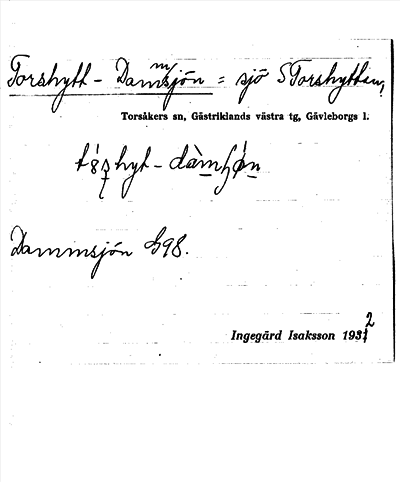 Torshytt-Dammsjön = sjö S Torshyttan,
Torsåkers sn, Gästriklands västra tg, Gävleborgs l.
Dammsjön G98.
Ingegärd Isaksson 1932